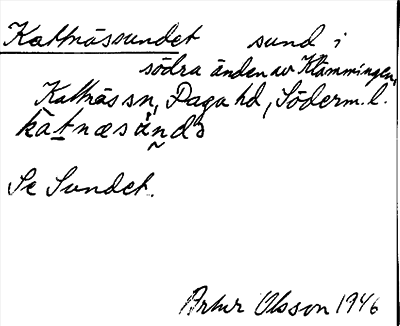 Kattnässundet sund i
södra änden av Klämmingen,
Kattnäs sn, Daga hd, Söderm. l.
Se Sundet.
Artur Olsson 1946